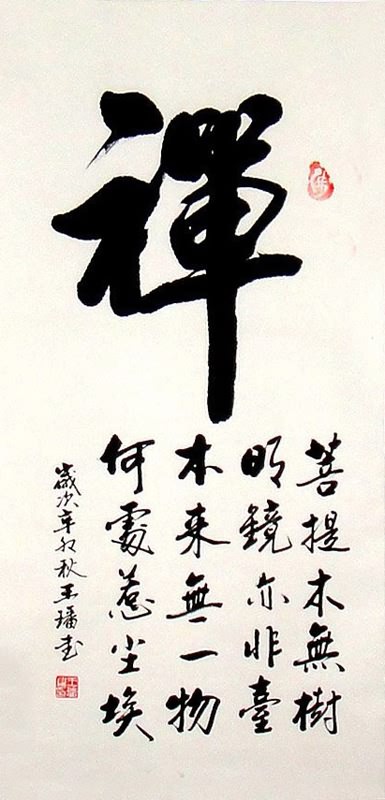 禪
菩提本無樹
明鏡亦非臺
本来無一物
何處惹尘埃
歲次辛卯秋王璠书
佛